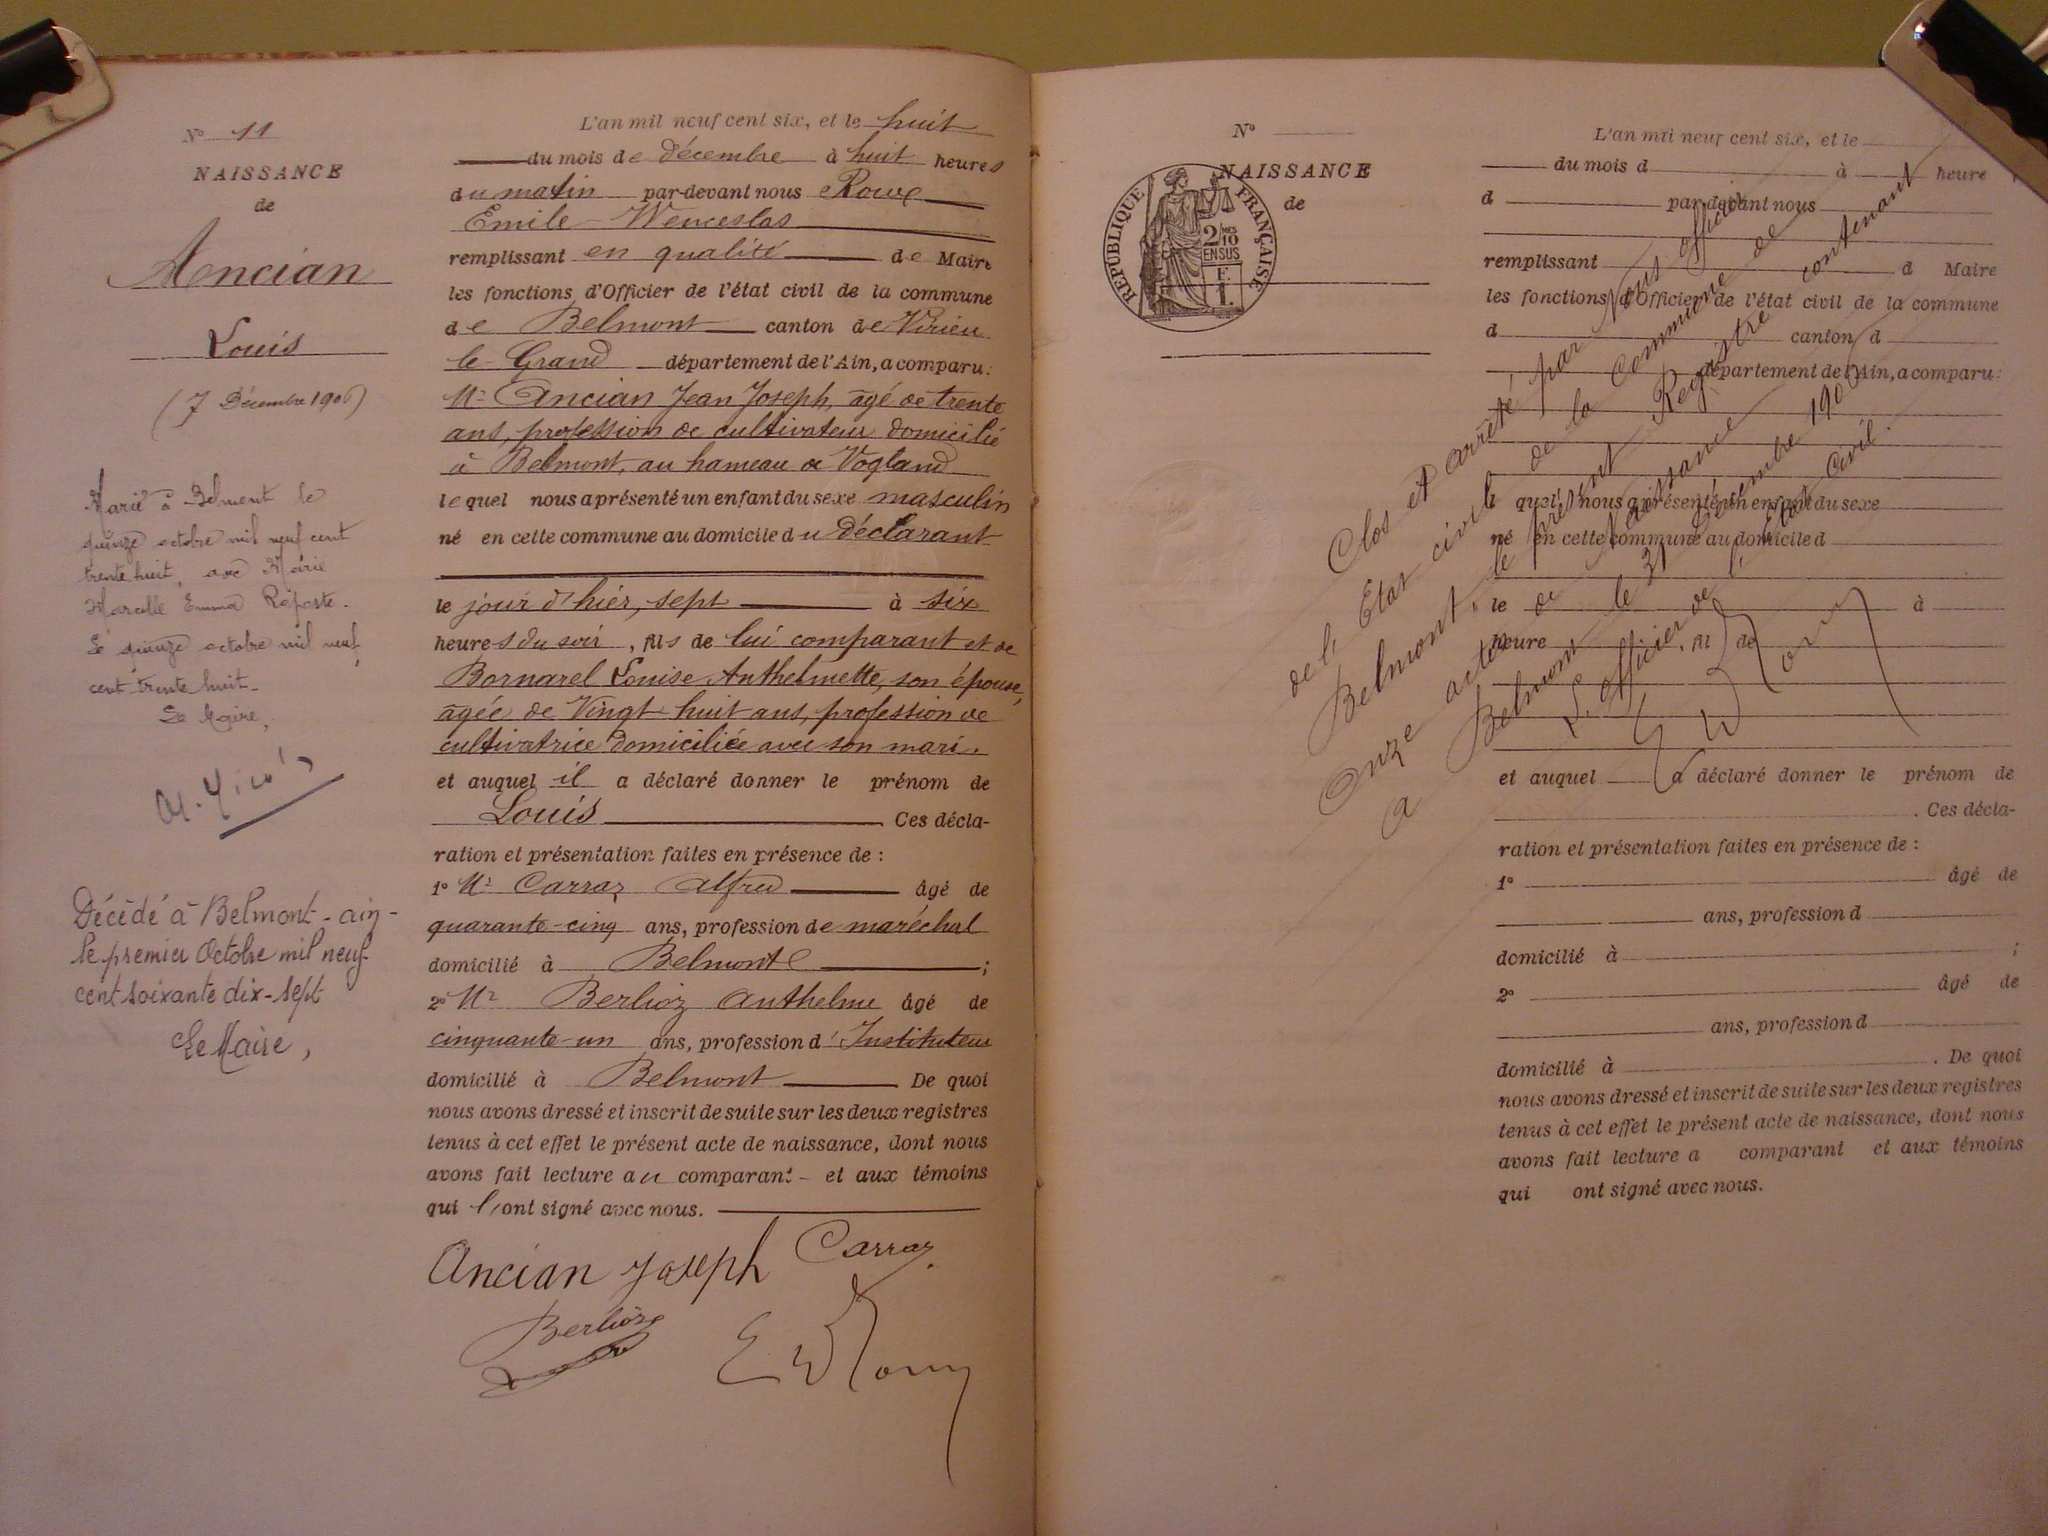 N° 11
NAISSANCE
de
Ancian
Louis
(7 Décembre 1906)
Marié à Belmont le
quinze octobre mil neuf cent
trente huit, avec Marie
Marcelle Emma
Le quinze octobre mil neuf
cent trente huit
Le Maire,
Décédé à Belmont-ain-
le premier Octobre mil neuf
cent soixante dix-sept
Le Maire,
L'an mil neuf cent six, et le huit
du mois de décembre à huit heures
du matin par-devant nous
Emile Wenceslas
remplissant en qualité de Maire
les fonctions d'Officier de l'état civil de la commune
de Belmont canton de Virieu
le Grand département de l'Ain, a comparu:
Mr Ancian Jean Joseph, âgé de trente
ans, profession de cultivateur domicilié
à Belmont, au hameau de Vogland
lequel nous a présenté un enfant du sexe masculin
né en cette commune au domicile du déclarant
le jour d'hier, sept à six
heures du soir, fils de lui comparant et de
Bornarel Louise Anthelmette, son épouse,
âgée de Vingt huit ans, profession de
cultivatrice domiciliée avec son mari.
et auquel il a déclaré donner le prénom de
Louis Ces décla-
ration et présentation faites en présence de :
1° Mr Carraz Alfred âgé de
quarante-cinq ans, profession de maréchal
domicilié à Belmont ;
2° Mr Berlioz Anthelme âgé de
cinquante-un ans, profession d'Instituteur
domicilié à Belmont De quoi
nous avons dressé et inscrit de suite sur les deux registres
tenus à cet effet le présent acte de naissance, dont nous
avons fait lecture au comparant - et aux témoins
qui l'ont signé avec nous.
Ancian Joseph Carraz
Berlioz
N°
NAISSANCE
de
RÉPUBLIQUE FRANÇAISE
2/10
EN SUS
L'an mil neuf cent six, et le
du mois d à heure
d par-devant nous
remplissant d Maire
les fonctions d'Officier de l'état civil de la commune
d canton d
département de l'Ain, a comparu:
lequel nous a présenté un enfant du sexe
né en cette commune au domicile d
le à
heure , fil de
et auquel a déclaré donner le prénom de
. Ces décla-
ration et présentation faites en présence de :
1° âgé de
ans, profession d
domicilié à ;
2° âgé de
ans, profession d
domicilié à . De quoi
nous avons dressé et inscrit de suite sur les deux registres
tenus à cet effet le présent acte de naissance, dont nous
avons fait lecture a comparant et aux témoins
qui ont signé avec nous.
Clos et arrêté par Nous officier
de l'Etat civil de la Commune de
Belmont, le présent Registre contenant
Onze actes de Naissance
A Belmont le 31 Décembre 1906
L'officier de l'état civil.